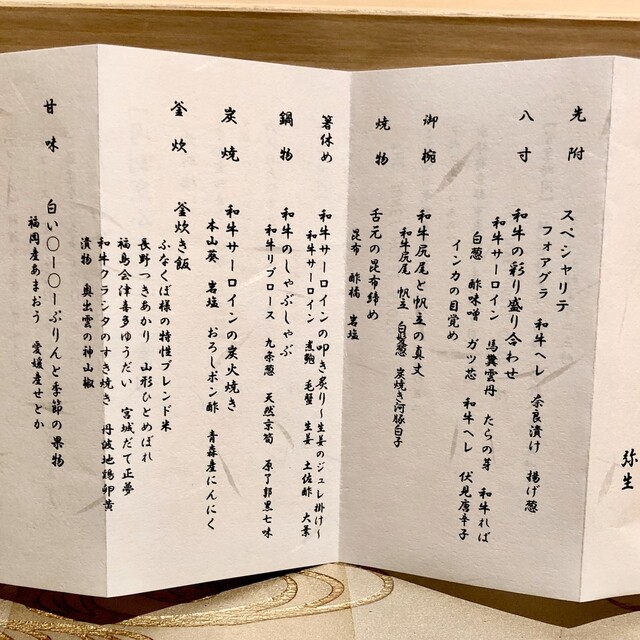 弥生
先附
スペシャリテ
フォアグラ 和牛ヘレ 奈良漬け 揚げ葱
八寸
和牛の彩り盛り合わせ
和牛サーロイン 馬糞雲丹 たらの芽 和牛れば
白葱 酢味噌 ガツ芯 和牛ヘレ 伏見唐辛子
インカの目覚め
御椀
和牛尻尾と帆立の真丈
和牛尻尾 帆立 白髪葱 炭焼き河豚白子
焼物
舌元の昆布締め
昆布 酢橘 岩塩
箸休め
和牛サーロインの叩き炙り～生姜のジュレ掛け～
和牛サーロイン 煮鮑 毛蟹 生姜 土佐酢 大葉
鍋物
和牛のしゃぶしゃぶ
和牛リブロース 九条葱 天然京筍 原了郭黒七味
炭焼
和牛サーロインの炭火焼き
本山葵 岩塩 おろしポン酢 青森産にんにく
釜炊
釜炊き飯
ふなくぼ様の特性ブレンド米
長野つきあかり 山形ひとめぼれ
福島会津喜多ゆうだい 宮城だて正夢
和牛クラシタのすき焼き 丹波地鶏卵黄
漬物 奥出雲の神山椒
甘味
白い〇ー〇ーぷりんと季節の果物
福岡産あまおう 愛媛産せとか